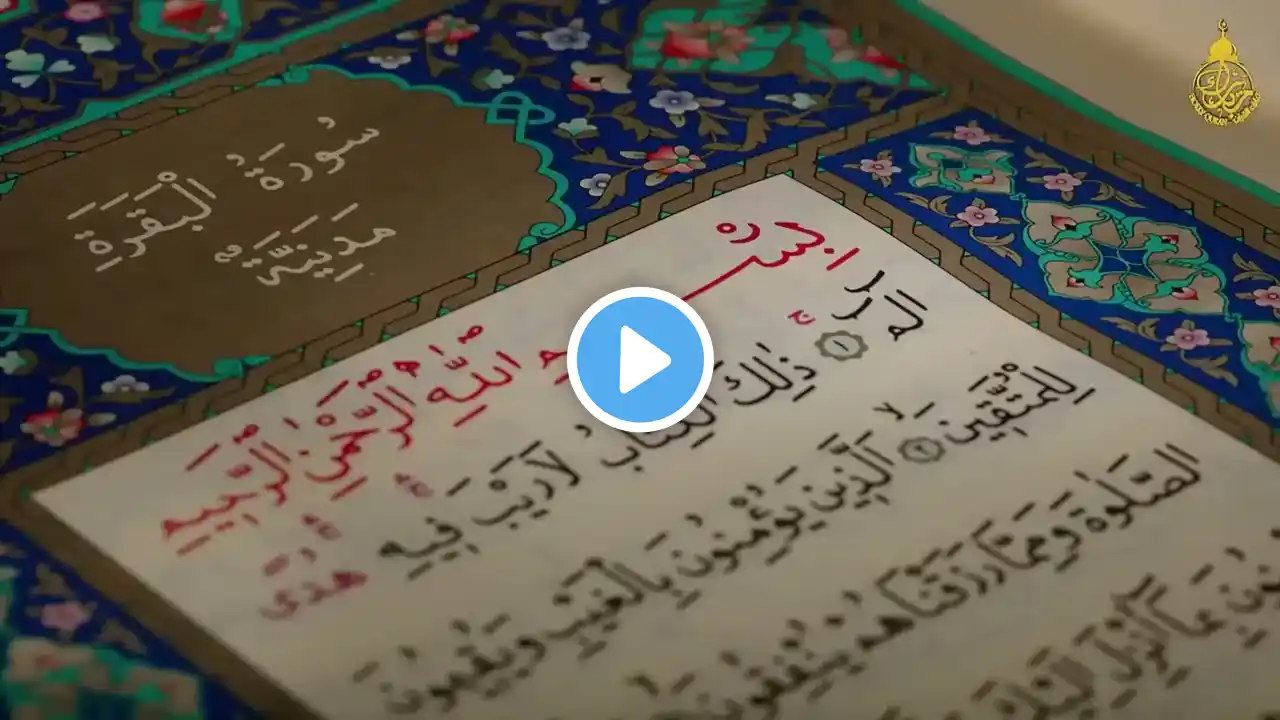 سُورَةُ الْبَقَرَةِ
مَدَنِيَّةٌ
بِسْمِ اللَّهِ الرَّحْمٰنِ الرَّحِيمِ
الٓمٓ ۝١ ذٰلِكَ الْكِتَابُ لَا رَيْبَ فِيهِ ۛ هُدًى
لِلْمُتَّقِينَ ۝٢ الَّذِينَ يُؤْمِنُونَ بِالْغَيْبِ وَيُقِيمُونَ
الصَّلٰوةَ وَمِمَّا رَزَقْنَاهُمْ يُنْفِقُونَ
بِمَا أُنْزِلَ إِلَيْكَ